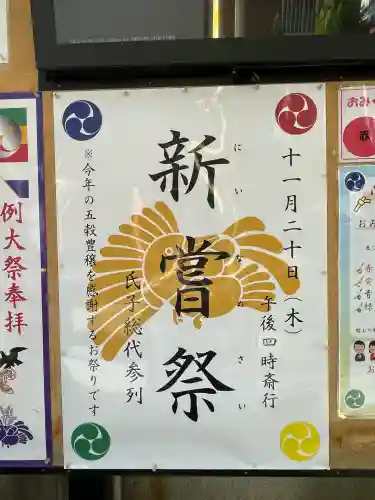 十一月二十日(木)
午後四時斎行
新嘗祭
にいなめさい
氏子総代参列
※今年の五穀豊穣を感謝するお祭りです
例大祭奉拝
おみ
赤